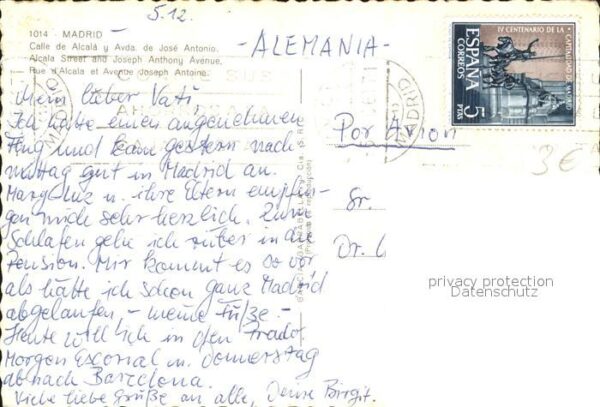 5.12.
1014 - MADRID
Calle de Alcalá y Avda. de José Antonio.
Alcala Street and Joseph Anthony Avenue.
Rue d'Alcala et Avenue Joseph Antoine.
- ALEMANIA -
ESPAÑA
CORREOS
5
PTAS
IV CENTENARIO DE LA
CAPITALIDAD DE MADRID
MADRID
Mein lieber Vati,
Ich hatte einen angenehmen
Flug und kam gestern nach-
mittag gut in Madrid an.
Mary-Luz u. ihre Eltern empfin-
gen mich sehr herzlich. Zum
Schlafen gehe ich rüber in die
Pension. Mir kommt es so vor
als hätte ich schon ganz Madrid
abgelaufen - meine Füße. -
Heute will ich in den Prado
Morgen Escorial u. Donnerstag
ab nach Barcelona.
Viele liebe Grüße an alle, Deine Birgit.
Por Avion
3€
Sr.
Dr.
privacy protection
Datenschutz